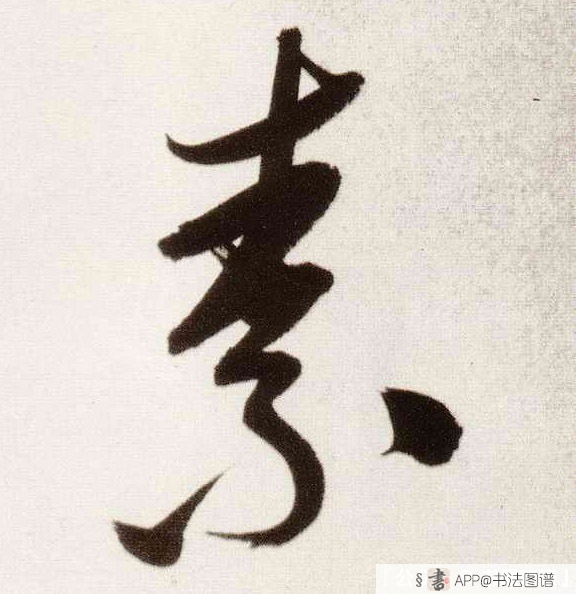 素
§ 書 APP@书法图谱